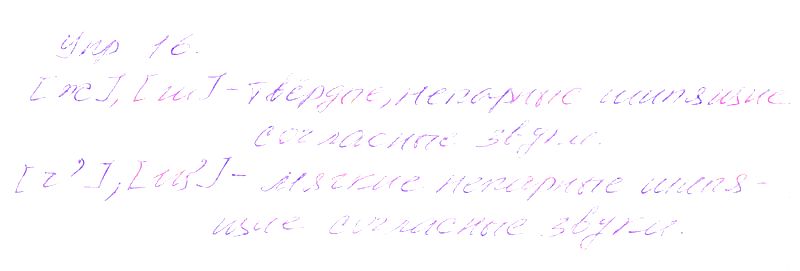 Упр 16.
[ж], [ш] - твёрдые, непарные шипящие
согласные звуки.
[ч'], [щ'] - мягкие непарные шипя-
щие согласные звуки.